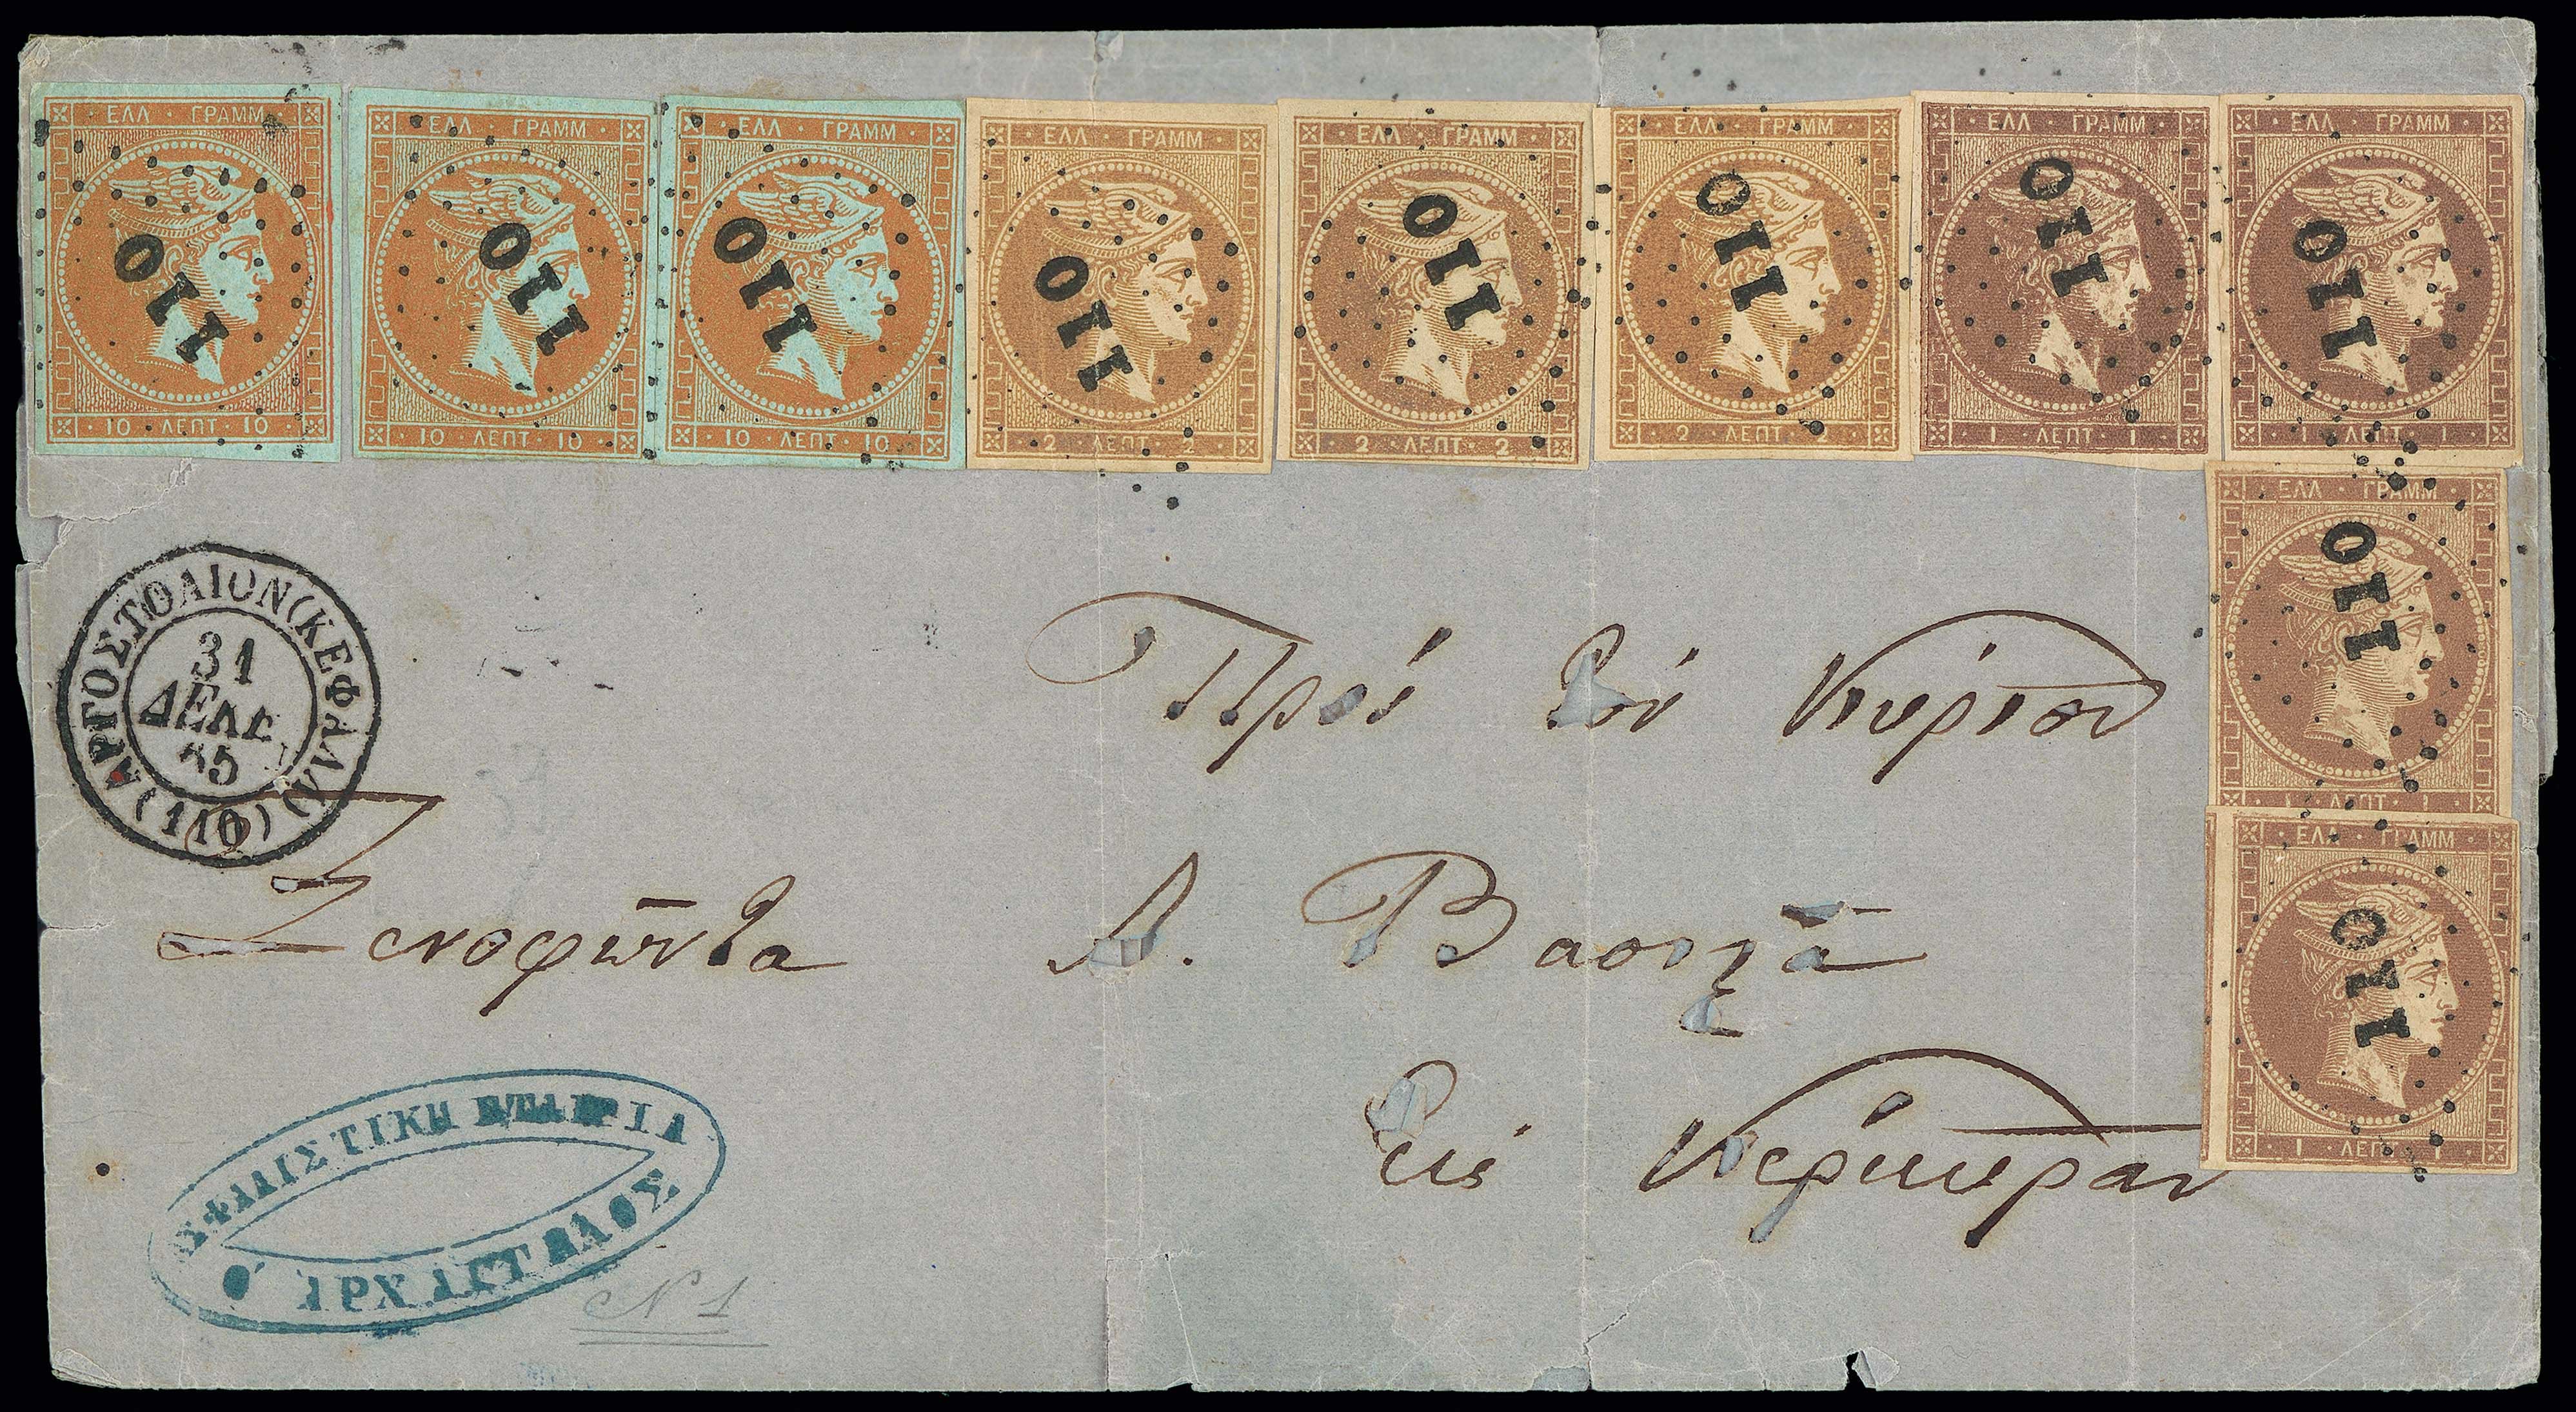 ΕΛΛ · ΓΡΑΜΜ
10 · ΛΕΠΤ · 10
110
ΕΛΛ · ΓΡΑΜΜ
10 · ΛΕΠΤ · 10
110
ΕΛΛ · ΓΡΑΜΜ
10 · ΛΕΠΤ · 10
110
ΕΛΛ · ΓΡΑΜΜ
2 · ΛΕΠΤ · 2
110
ΕΛΛ · ΓΡΑΜΜ
2 · ΛΕΠΤ · 2
110
ΕΛΛ · ΓΡΑΜΜ
2 · ΛΕΠΤ · 2
110
ΕΛΛ · ΓΡΑΜΜ
1 · ΛΕΠΤ · 1
110
ΕΛΛ · ΓΡΑΜΜ
1 · ΛΕΠΤ · 1
110
ΕΛΛ · ΓΡΑΜΜ
1 · ΛΕΠΤ · 1
110
ΕΛΛ · ΓΡΑΜΜ
1 · ΛΕΠΤ · 1
110
ΑΡΓΟΣΤΟΛΙΟΝ (ΚΕΦΑΛΛ)
31
ΔΕΚΕ
65
(110)
Πρός τόν Κύριον
Ξενοφῶντα Α.
εἰς Κέρκυραν
ΑΣΦΑΛΙΣΤΙΚΗ ΕΤΑΙΡΙΑ
Ο ΑΡΧΑΓΓΕΛΟΣ
N 1